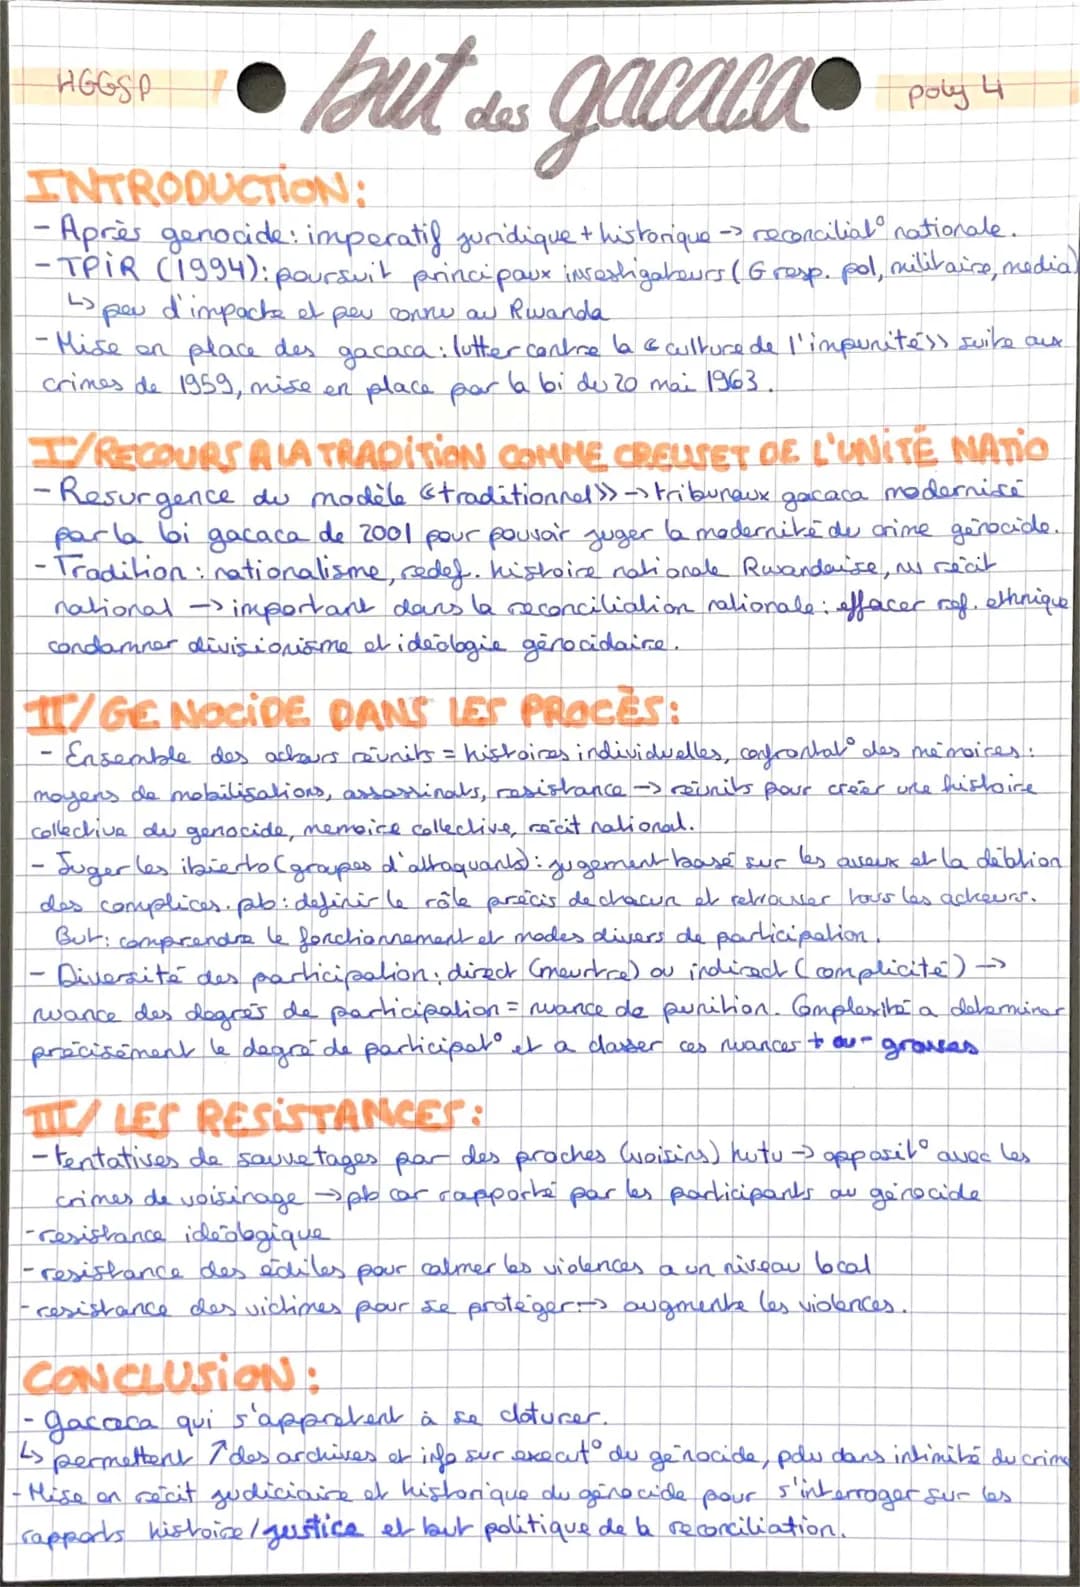 HGGSP
but des gacaca
poly 4
INTRODUCTION:
- Après genocide: imperatif juridique + historique -> reconciliat° nationale.
- TPIR (1994): poursuit principaux investigateurs (G resp. pol, militaire, media)
↳ peu d'impacte et peu connu au Rwanda
- Mise en place des gacaca: lutter contre la « culture de l'impunité » suite aux
crimes de 1959, mise en place par la loi du 20 mai 1963.
I/ RECOURS A LA TRADITION COMME CREUSET DE L'UNITÉ NATIO
- Resurgence du modèle « traditionnel » -> tribunaux gacaca modernisé
par la loi gacaca de 2001 pour pouvoir juger la modernité du crime génocide.
- Tradition: nationalisme, redef. histoire nationale Rwandaise, nv récit
national -> important dans la reconciliation nationale: effacer ref. ethnique
condamner divisionisme et idéologie génocidaire.
II/ GENOCIDE DANS LES PROCÈS:
- Ensemble des acteurs réunits = histoires individuelles, confrontat° des mémoires:
moyens de mobilisations, assassinats, resistance -> réunits pour créer une histoire
collective du genocide, memoire collective, récit national.
- Juger les ibierto (groupes d'attaquants): jugement basé sur les aveux et la délation
des complices. pb: definir le rôle précis de chacun et retrouver tous les acteurs.
But: comprendre le fonctionnement et modes divers de participation.
- Diversité des participation: direct (meurtre) ou indirect (complicité) ->
nuance des degrés de participation = nuance de punition. Complexité a determiner
précisément le degré de participat° et a classer ces nuances + ou - graves
III/ LES RESISTANCES:
- tentatives de sauvetages par des proches (voisins) hutu -> opposit° avec les
crimes de voisinage -> pb car rapporté par les participants au génocide
- resistance idéologique
- resistance des édiles pour calmer les violences a un niveau local
- resistance des victimes pour se protéger: -> augmente les violences.
CONCLUSION:
- gacaca qui s'appretent à se cloturer.
↳ permettent ↗ des archives et info sur execut° du génocide, pdv dans intimité du crime
- Mise en récit judiciaire et historique du génocide pour s'interroger sur les
rapports histoire/justice et but politique de la reconciliation.